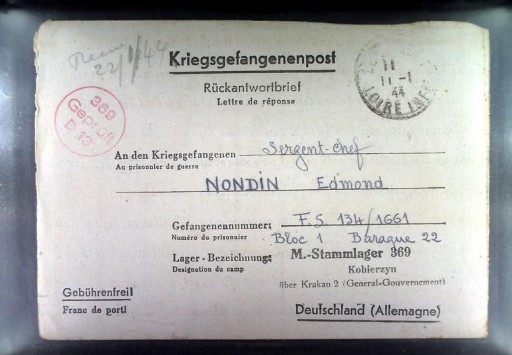 22/1/44
Kriegsgefangenenpost
Rückantwortbrief
Lettre de réponse
11
11 -1
44
LOIRE INF
369
Geprüft
D 13
An den Kriegsgefangenen Sergent-chef
Au prisonnier de guerre
NONDIN Edmond
Gefangenennummer: F.S. 134/1661
Numéro du prisonnier Bloc 1 Baraque 22
Lager-Bezeichnung: M.-Stammlager 369
Designation du camp Kobierzyn
über Krakau 2 (General-Gouvernement)
Gebührenfrei!
Franc de port!
Deutschland (Allemagne)